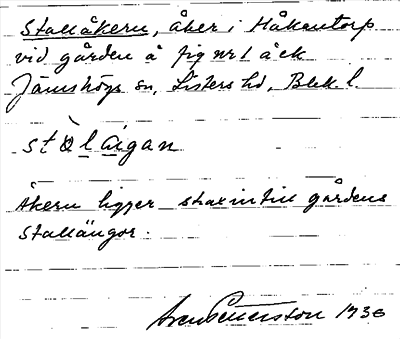 Stallåkern, åker i Håkantorp
vid gården å fig nr 1 å ek
Jämshögs sn, Listers hd, Blek. l.
Åkern ligger strax intill gårdens
Stallängor.
Pettersson 1936